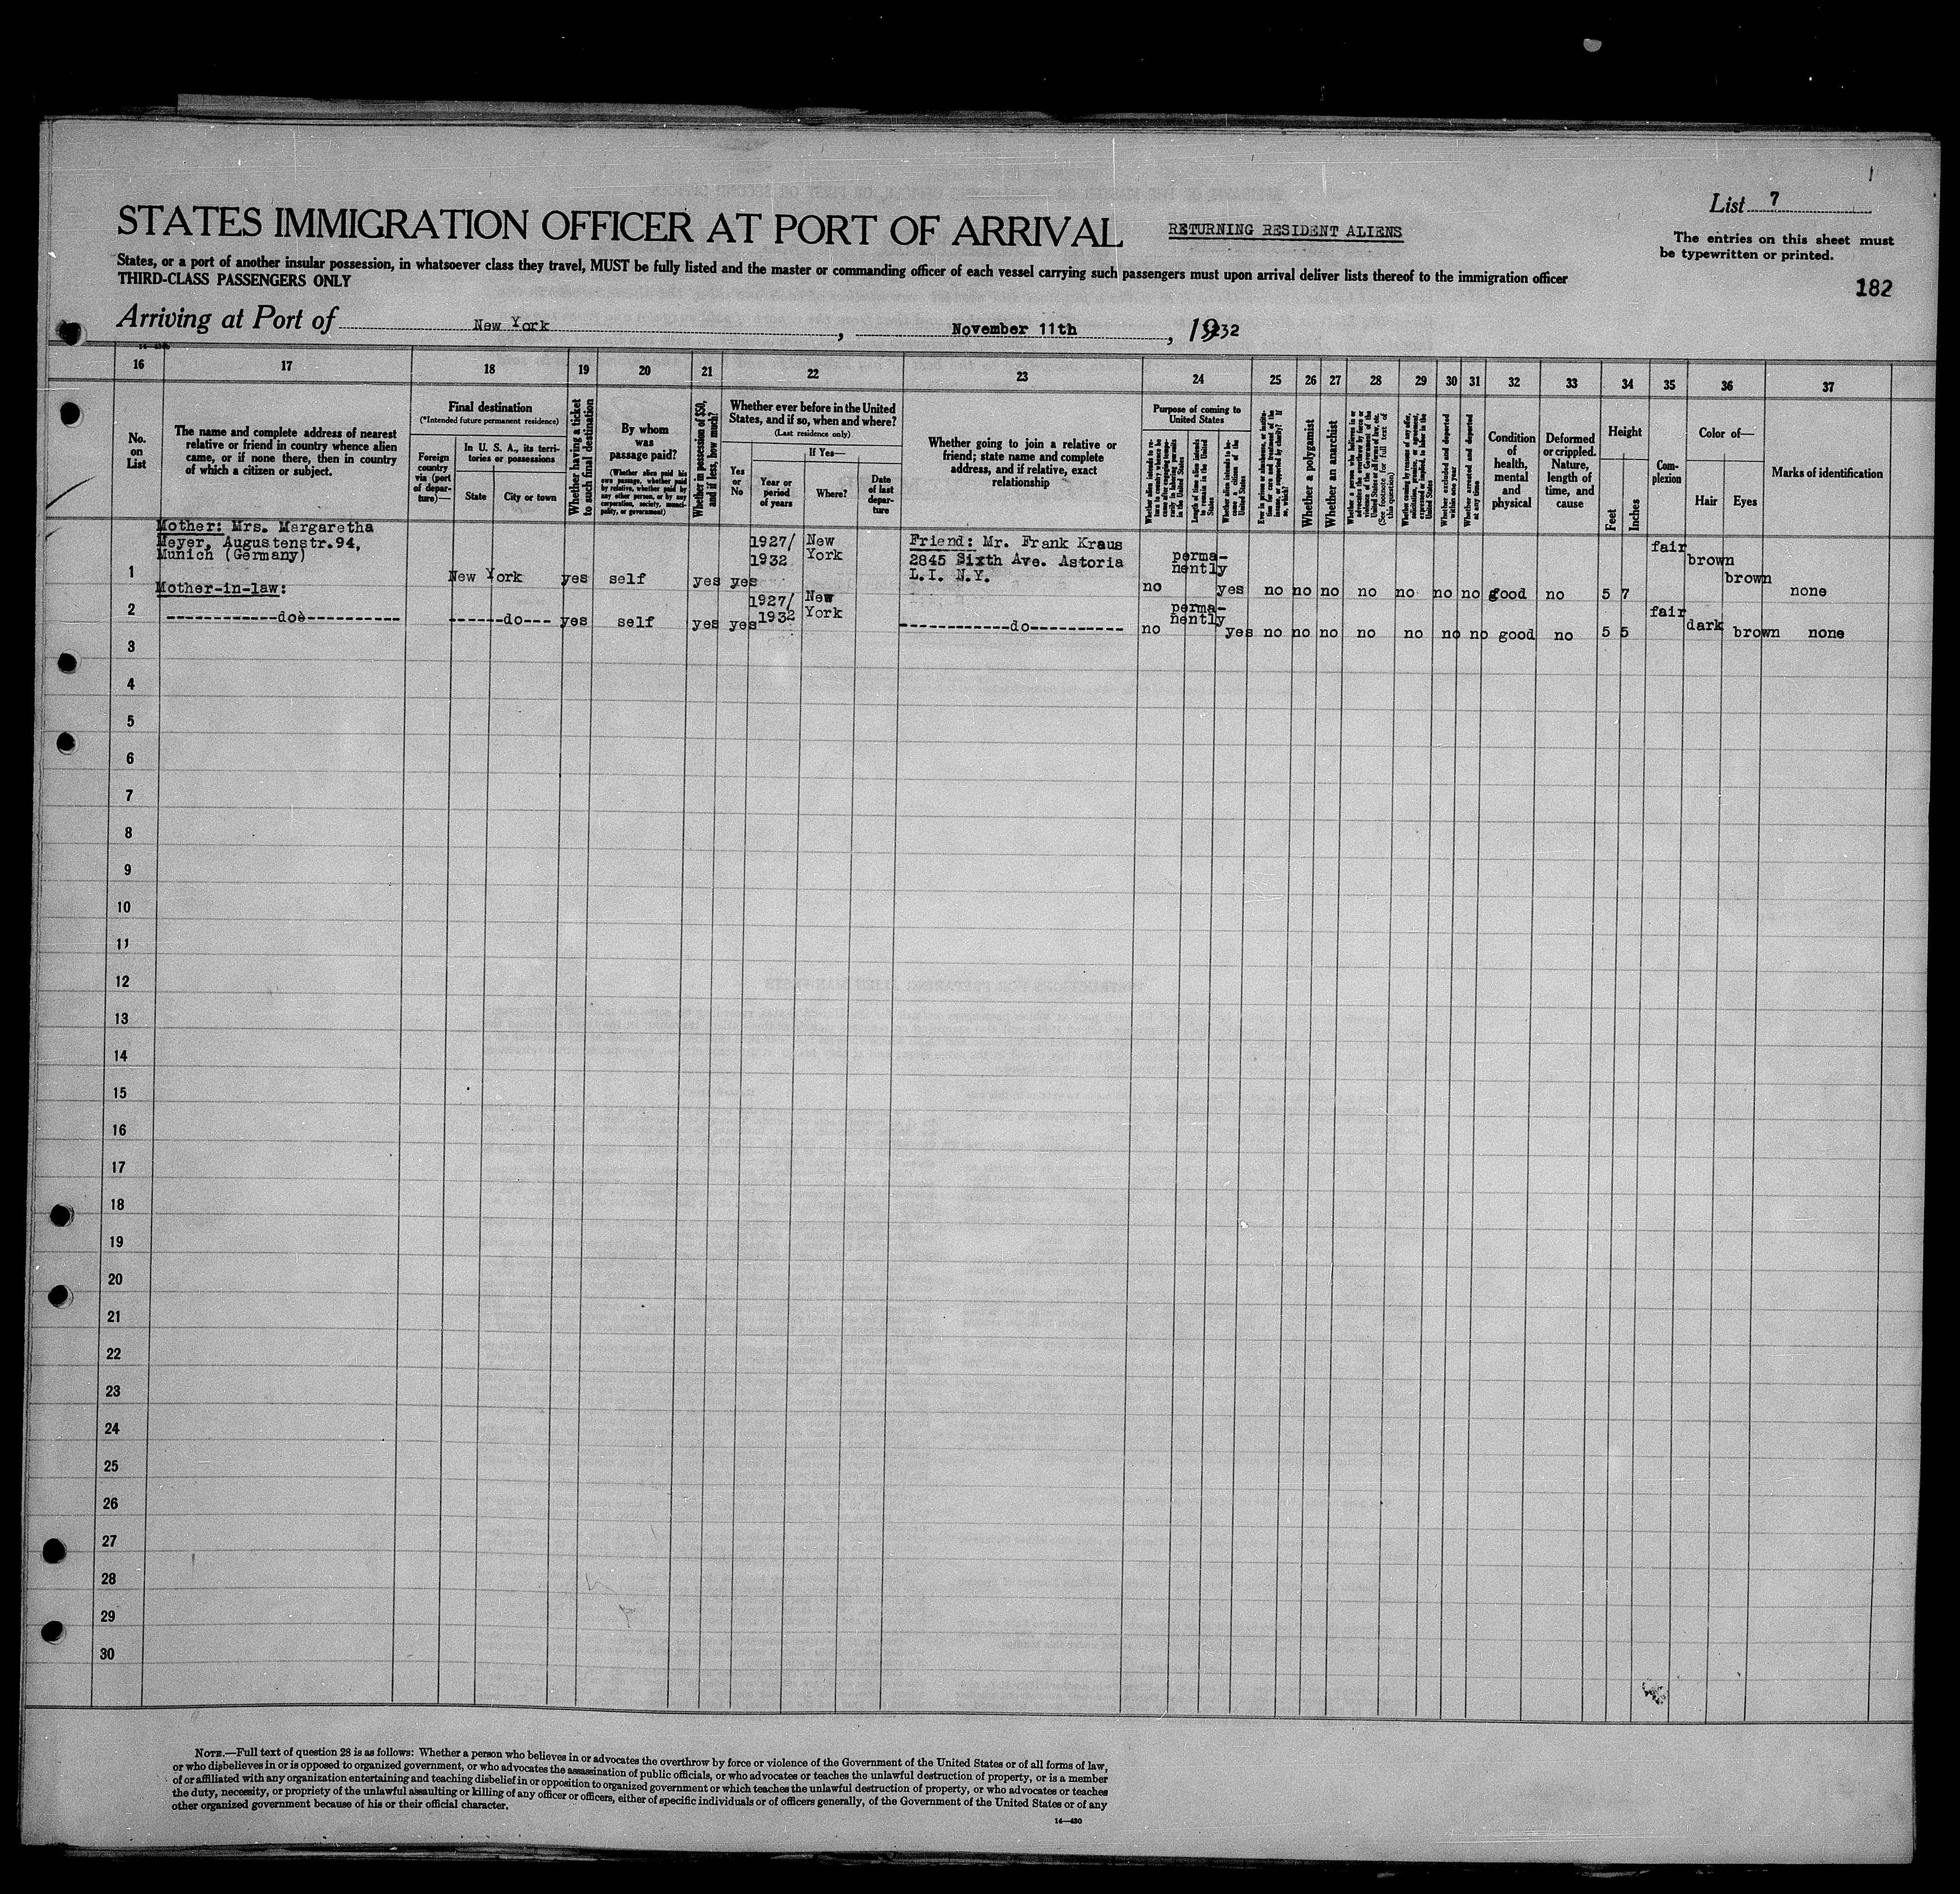 List 7
STATES IMMIGRATION OFFICER AT PORT OF ARRIVAL
RETURNING RESIDENT ALIENS
The entries on this sheet must
be typewritten or printed.
States, or a port of another insular possession, in whatsoever class they travel, MUST be fully listed and the master or commanding officer of each vessel carrying such passengers must upon arrival deliver lists thereof to the immigration officer
THIRD-CLASS PASSENGERS ONLY
182
Arriving at Port of New York, November 11th, 1932
16 17 18 19 20 21 22 23 24 25 26 27 28 29 30 31 32 33 34 35 36 37
No.
on
List
The name and complete address of nearest
relative or friend in country whence alien
came, or if none there, then in country
of which a citizen or subject.
Final destination
(*Intended future permanent residence)
Foreign
country
via (port
of depar-
ture)—
In U. S. A., its terri-
tories or possessions
State
City or town
Whether having a ticket
to such final destination
By whom
was
passage paid?
(Whether alien paid his
own passage, whether paid
by relative, whether paid by
any other person, or by any
corporation, society, munici-
pality, or government)
Whether in possession of $50,
and if less, how much?
Whether ever before in the United
States, and if so, when and where?
(Last residence only)
Yes
or
No
If Yes—
Year or
period
of years
Where?
Date
of last
depar-
ture
Whether going to join a relative or
friend; state name and complete
address, and if relative, exact
relationship
Purpose of coming to
United States
Whether alien intends to re-
turn to country whence he
came after engaging tempo-
rarily in laboring pursuits
in the United States
Length of time alien intends
to remain in the United
States
Whether alien intends to be-
come a citizen of the
United States
Ever in prison or almshouse, or institu-
tion for care and treatment of the
insane, or supported by charity? If
so, which?
Whether a polygamist
Whether an anarchist
Whether a person who believes in or
advocates the overthrow by force or
violence of the Government of the
United States or all forms of law, etc.
(See footnote for full text of
this question)
Whether coming by reasons of any offer,
solicitation, promise, or agreement,
expressed or implied, to labor in the
United States
Whether excluded and deported
within one year
Whether arrested and deported
at any time
Condition
of
health,
mental
and
physical
Deformed
or crippled.
Nature,
length of
time, and
cause
Height
Feet
Inches
Com-
plexion
Color of—
Hair
Eyes
Marks of identification
Mother: Mrs. Margaretha
Meyer, Augustenstr.94,
Munich (Germany)
1 New York yes self yes yes 1927/ 1932 New York
Friend: Mr. Frank Kraus
2845 Sixth Ave. Astoria
L.I. N.Y.
no perma-
nently yes no no no no no no no good no 5 7 fair brown brown none
Mother-in-law:
2 ------------do------------ ------do--- yes self yes yes 1927/ 1932 New York ------------do---------- no perma-
nently yes no no no no no no no good no 5 5 fair dark brown none
3
4
5
6
7
8
9
10
11
12
13
14
15
16
17
18
19
20
21
22
23
24
25
26
27
28
29
30
NOTE.—Full text of question 28 is as follows: Whether a person who believes in or advocates the overthrow by force or violence of the Government of the United States or of all forms of law,
or who disbelieves in or is opposed to organized government, or who advocates the assassination of public officials, or who advocates or teaches the unlawful destruction of property, or is a member
of or affiliated with any organization entertaining and teaching disbelief in or opposition to organized government or which teaches the unlawful destruction of property, or who advocates or teaches
the duty, necessity, or propriety of the unlawful assaulting or killing of any officer or officers, either of specific individuals or of officers generally, of the Government of the United States or of any
other organized government because of his or their official character.
14—430